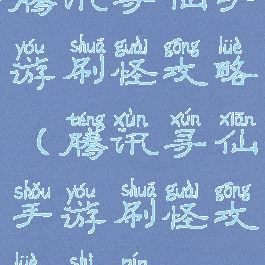 腾讯寻仙手
yóu shuā guài gōng lüè
游刷怪攻略
téng xùn xún xiān
(腾讯寻仙
shǒu yóu shuā guài gōng
手游刷怪攻
lüè shì pín